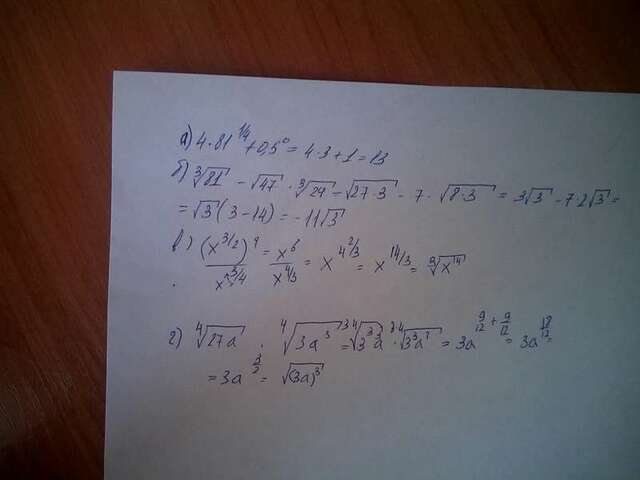 а) 4·81^{1/4}+0,5^0 = 4·3+1=13
б) ∛81 - √47 · ∛24 = √27·3 - 7 · √8·3 = 3√3 - 7·2√3 =
= √3(3-14) = -11√3
в) (x^{3/2})^4 / x^{3/4} = x^6 / x^{4/3} = x^{4 2/3} = x^{14/3} = ∛x^{14}
г) ⁴√27a · ⁴√3a^3 = = 3a^{9/12 + 9/12} = 3a^{18/12} =
= 3a^{3/2} = √(3a)^3